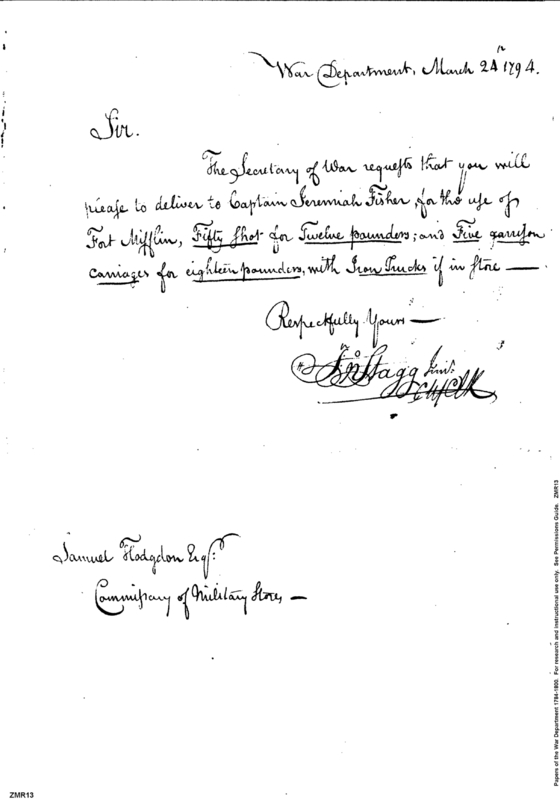 War Department, March 24th 1794.
Sir.
The Secretary of War requests that you will
please to deliver to Captain Jeremiah Fisher, for the use of
Fort Mifflin, Fifty shot for Twelve pounders; and Five garrison
carriages for eighteen pounders, with Iron Trucks if in store —
Respectfully Yours —
Jno Stagg Junr.
Ch Clk
Samuel Hodgdon Esqr.
Commissary of Military Stores —
Papers of the War Department 1784-1800. For research and instructional use only. See Permissions Guide. ZMR13
ZMR13